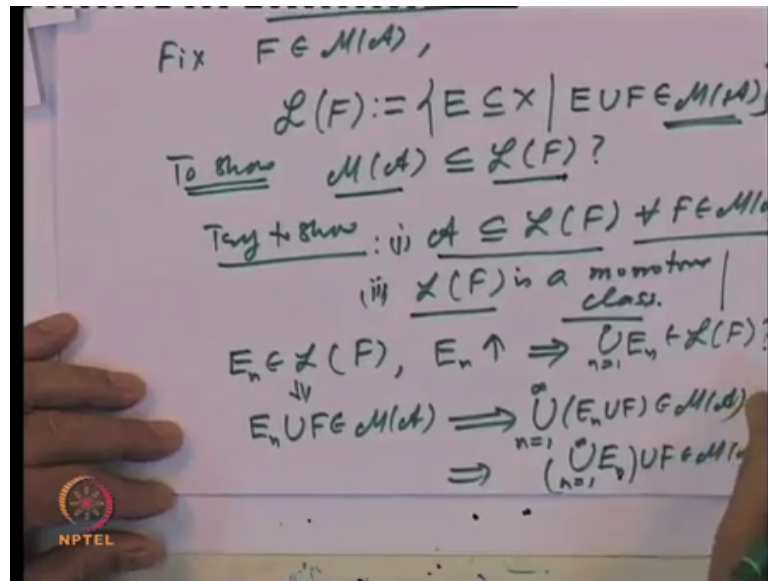 Fix F ∈ M(A),
L(F) := {E ⊆ X | E ∪ F ∈ M(A)}
To show M(A) ⊆ L(F) ?
Try to show : (i) A ⊆ L(F) ∀ F ∈ M(A
(ii) L(F) is a monotone
class.
E_n ∈ L(F), E_n ↑ ⇒ ∪_{n=1}^∞ E_n ∈ L(F) ?
⇓
E_n ∪ F ∈ M(A) ⇒ ∪_{n=1}^∞ (E_n ∪ F) ∈ M(A)
⇒ (∪_{n=1}^∞ E_n) ∪ F ∈ M(
NPTEL